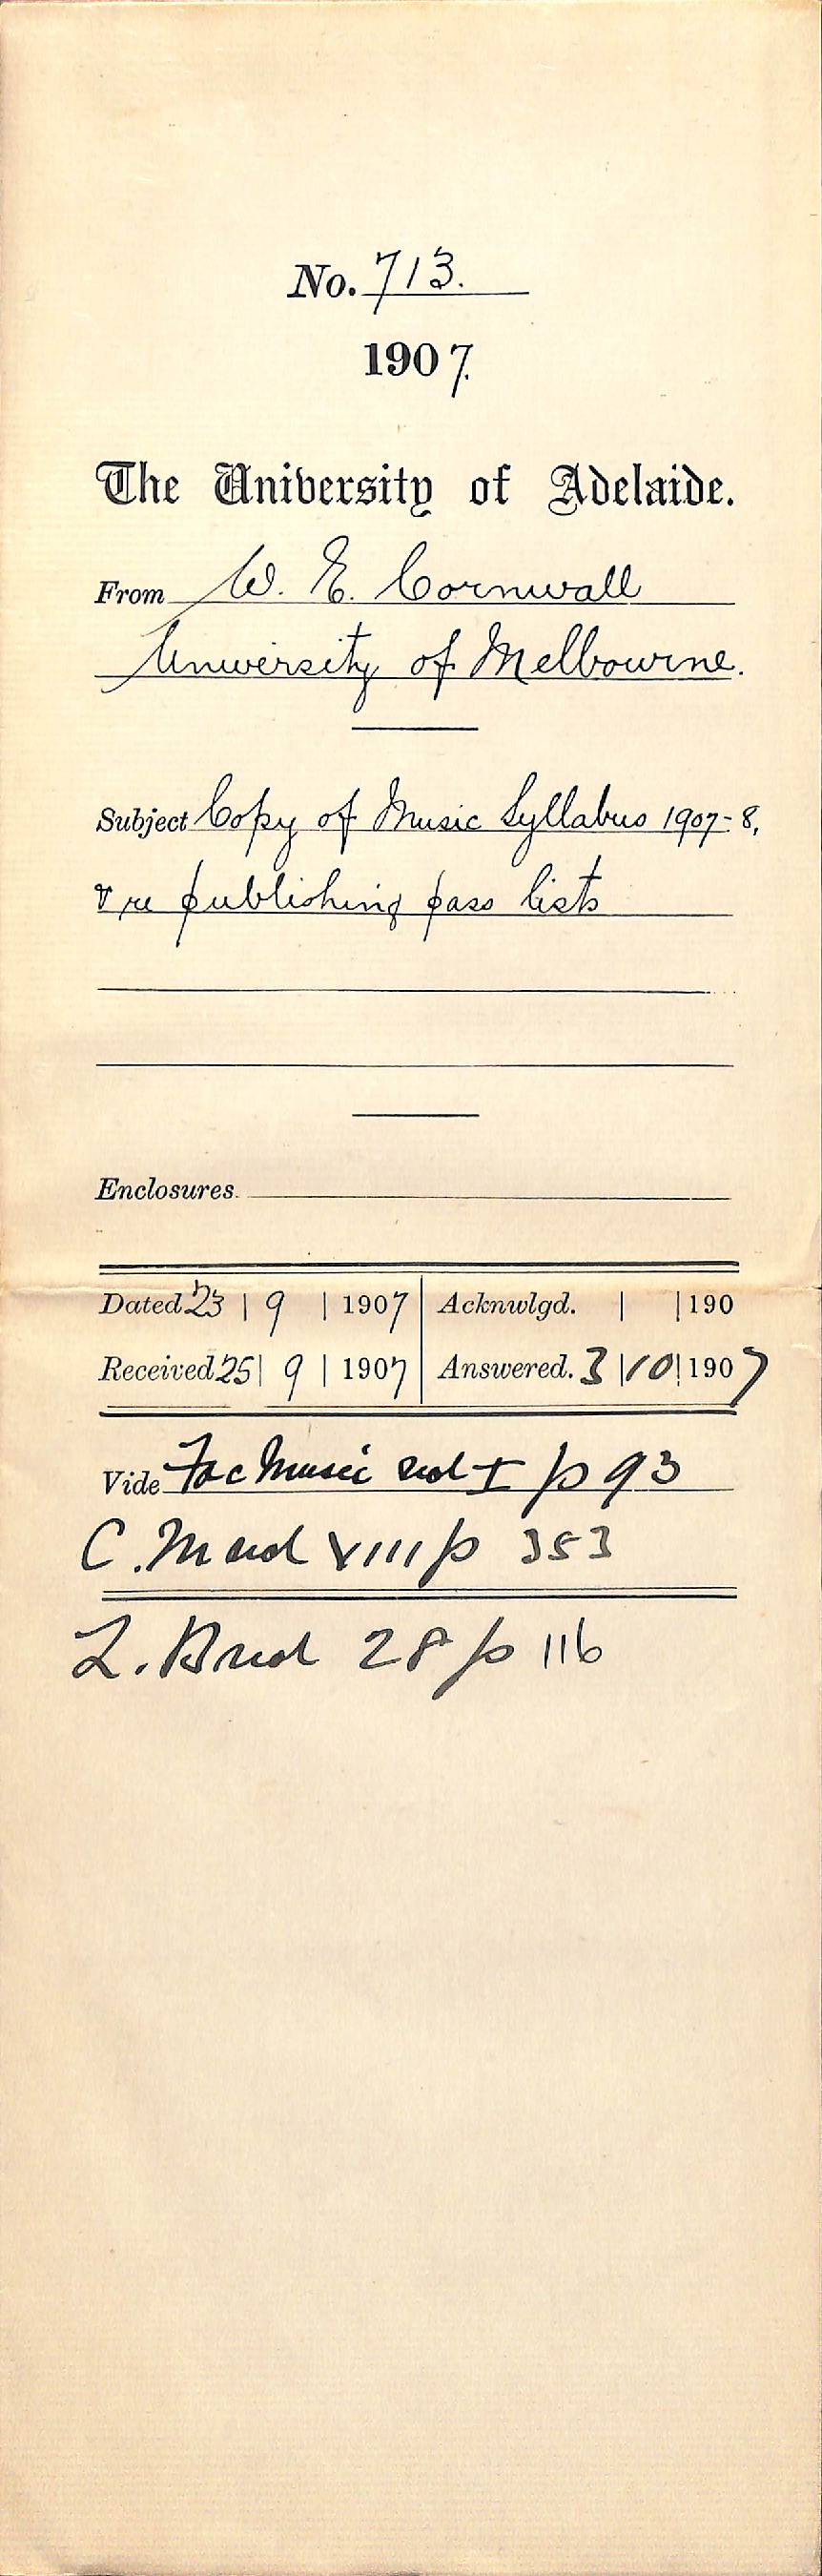 No. 713.
1907.
The University of Adelaide.
From W. E. Cornwall
University of Melbourne.
Subject Copy of Music Syllabus 1907-8,
& re publishing pass lists
Enclosures.
Dated 23 | 9 | 1907 | Acknwlgd. | | 190
Received 25 | 9 | 1907 | Answered. 3 | 10 | 1907
Vide Fac Music vol I p 93
C. M vol VIII p 353
L. B vol 28 p 116